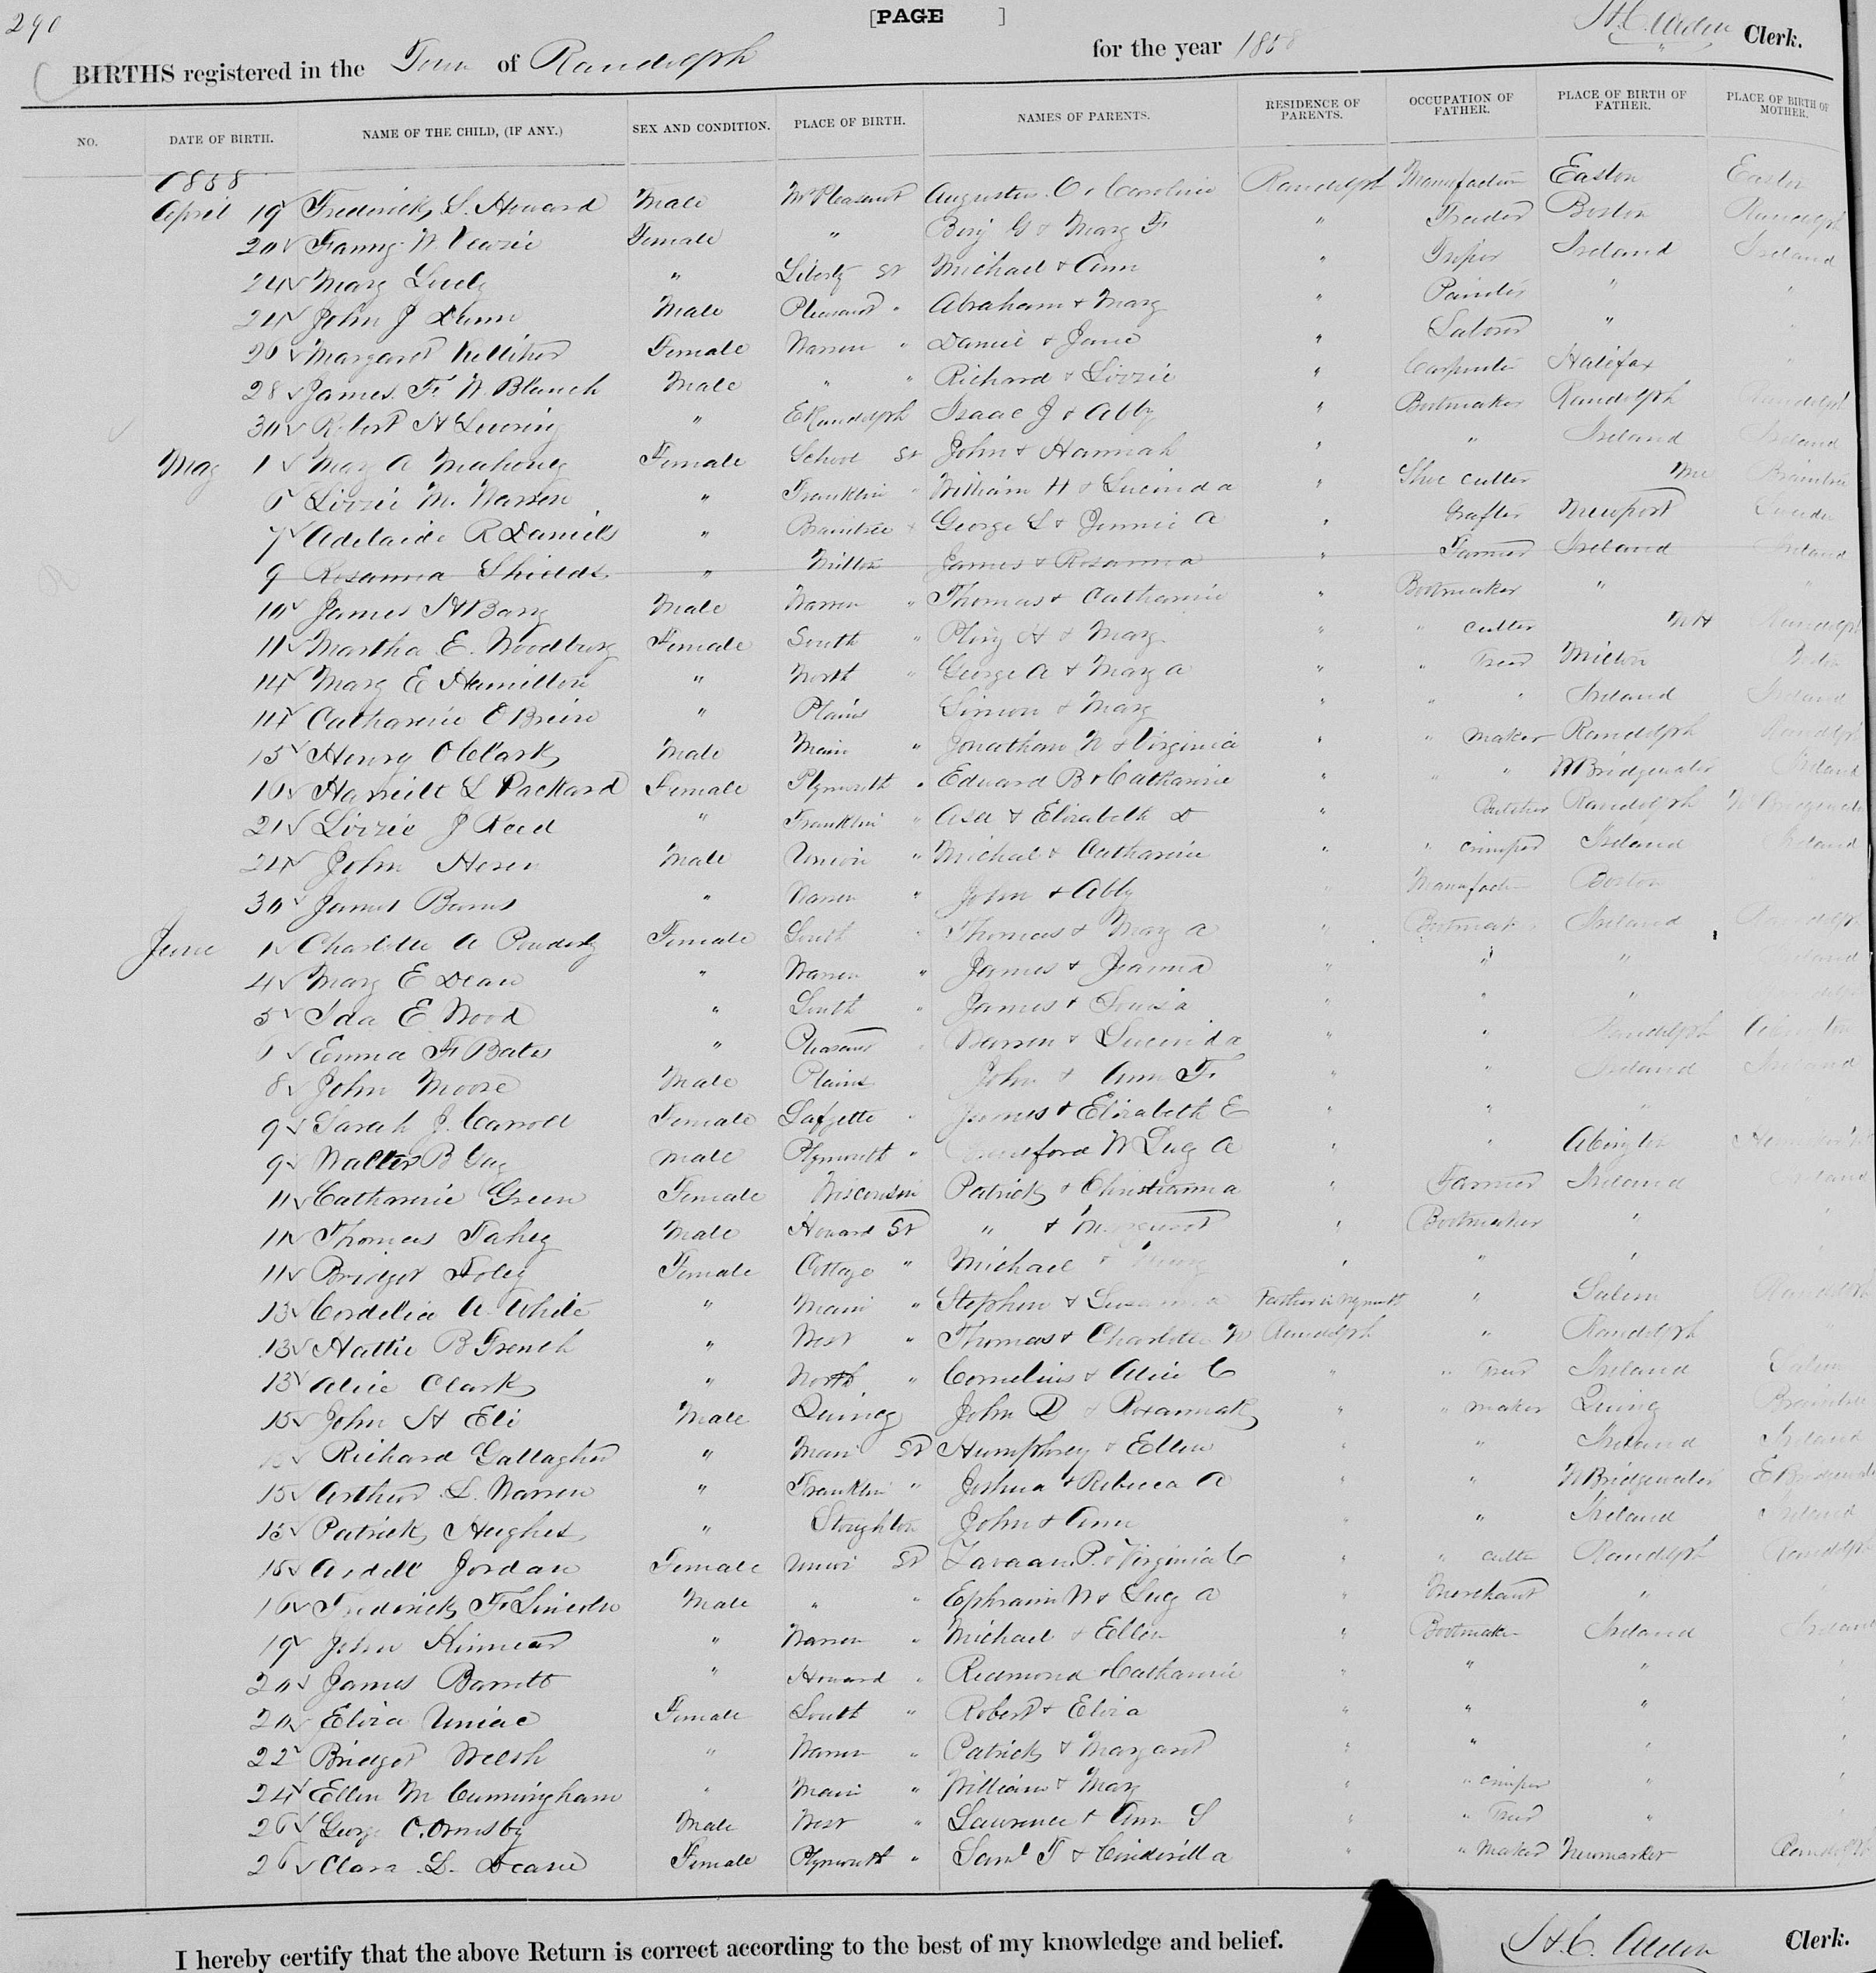 290
[PAGE ]
BIRTHS registered in the Town of Randolph for the year 1858 Clerk.
NO. DATE OF BIRTH. NAME OF THE CHILD, (IF ANY.) SEX AND CONDITION. PLACE OF BIRTH. NAMES OF PARENTS. RESIDENCE OF PARENTS. OCCUPATION OF FATHER. PLACE OF BIRTH OF FATHER. PLACE OF BIRTH OF MOTHER.
1858
April 19 Frederick S. Howard Male Mt Pleasant Augustus & Caroline Randolph Easton Easton
20 Fanny W. Veazie Female " Benj G & Mary F " Trader Boston Randolph
24 Mary " Liberty St Michael & Ann " Ireland Ireland
24 John J Dunn Male Pleasant " Abraham & Mary " Painter " "
26 Margaret Kelliher Female Warren " Daniel & Jane " Laborer " "
28 James F. W. Blanch Male " " Richard & Lizzie " Carpenter Halifax "
30 Robert H " E Randolph Isaac J & Abby " Bootmaker Randolph Randolph
May 1 Mary A Mahoney Female School St John & Hannah " " Ireland Ireland
6 Lizzie M. Warren " Franklin " William H & Lucinda " Shoe cutter Me Braintree
7 Adelaide R Daniels " Braintree George L & Jennie A " Newport
9 Rosanna Shields " Milton James & Rosanna " Farmer Ireland Ireland
10 James H Barry Male Warren " Thomas & Catharine " Bootmaker " "
11 Martha E. Woodbury Female South " & Mary " " cutter NH Randolph
14 Mary E Hamilton " North " George A & Mary A " " Treer Milton
14 Catharine O Brien " Plains Simon & Mary " " " Ireland Ireland
15 Henry O Clark Male Main " Jonathan W & Virginia " " maker Randolph Randolph
16 Harriett L Packard Female Plymouth " Edward B & Catharine " " " N Bridgewater Ireland
21 Lizzie J Reed " Franklin " Asa & Elizabeth D " Butcher Randolph N Bridgewater
24 John Heren Male Union " Michael & Catharine " " crimper Ireland Ireland
30 James Barnes " Warren " John & Abby " Boston
June 1 Charlotte A South " Thomas & Mary A " Bootmaker Ireland Randolph
4 Mary E Dean " Warren " James & Joanna " " " Ireland
5 Ida E Wood " South " James & Louisa " " "
6 Emma F Bates " Pleasant " Warren & Lucinda " " Randolph
8 John Moore Male Plains John & Ann F. " " Ireland Ireland
9 Sarah J. Carroll Female Lafyette " James & Elizabeth E " " "
9 Walter B Male Plymouth " " " Abington
11 Catharine Green Female Wisconsin Patrick & Christianna " Farmer Ireland Ireland
11 Thomas Fahey Male Howard St " & Margaret " Bootmaker " "
11 Bridget Foley Female Cottage " Michael & " " "
13 Cordelia A. White " Main " Stephen & Susanna " Salem Randolph
13 Hattie B French " West " Thomas & Charlotte W Randolph " Randolph "
13 Alice Clark " North " Cornelius & Alice C " " Treer Ireland Salem
15 John H Eli Male Quincy John D & " " maker Quincy Braintree
15 Richard Gallagher " Main St Humphrey & Ellen " " Ireland Ireland
15 Arthur L. Warren " Franklin " Joshua & Rebecca A " " N Bridgewater E Bridgewater
15 Patrick Hughes " Stoughton John & Ann " " Ireland Ireland
15 Ardell Jordan Female Union St P. & Virginia C " " cutter Randolph Randolph
16 Frederick F. Lincoln Male " " Ephraim W & Lucy A " Merchant " "
19 John Kinnear " Warren " Michael & Ellen " Bootmaker Ireland Ireland
20 James Barrett " Howard " Redmond & Catharine " " " "
20 Eliza Uniac Female South " Robert & Eliza " " " "
22 Bridget Welsh " Warren " Patrick & Margaret " " " "
24 Ellen M Cunningham " Main " William & Mary " " crimper " "
26 George O. Ormsby Male West " Lawrence & Ann S " " Treer " "
26 Clara L. Deane Female Plymouth " Saml T & Cinderilla " " maker Newmarket Randolph
I hereby certify that the above Return is correct according to the best of my knowledge and belief. Clerk.